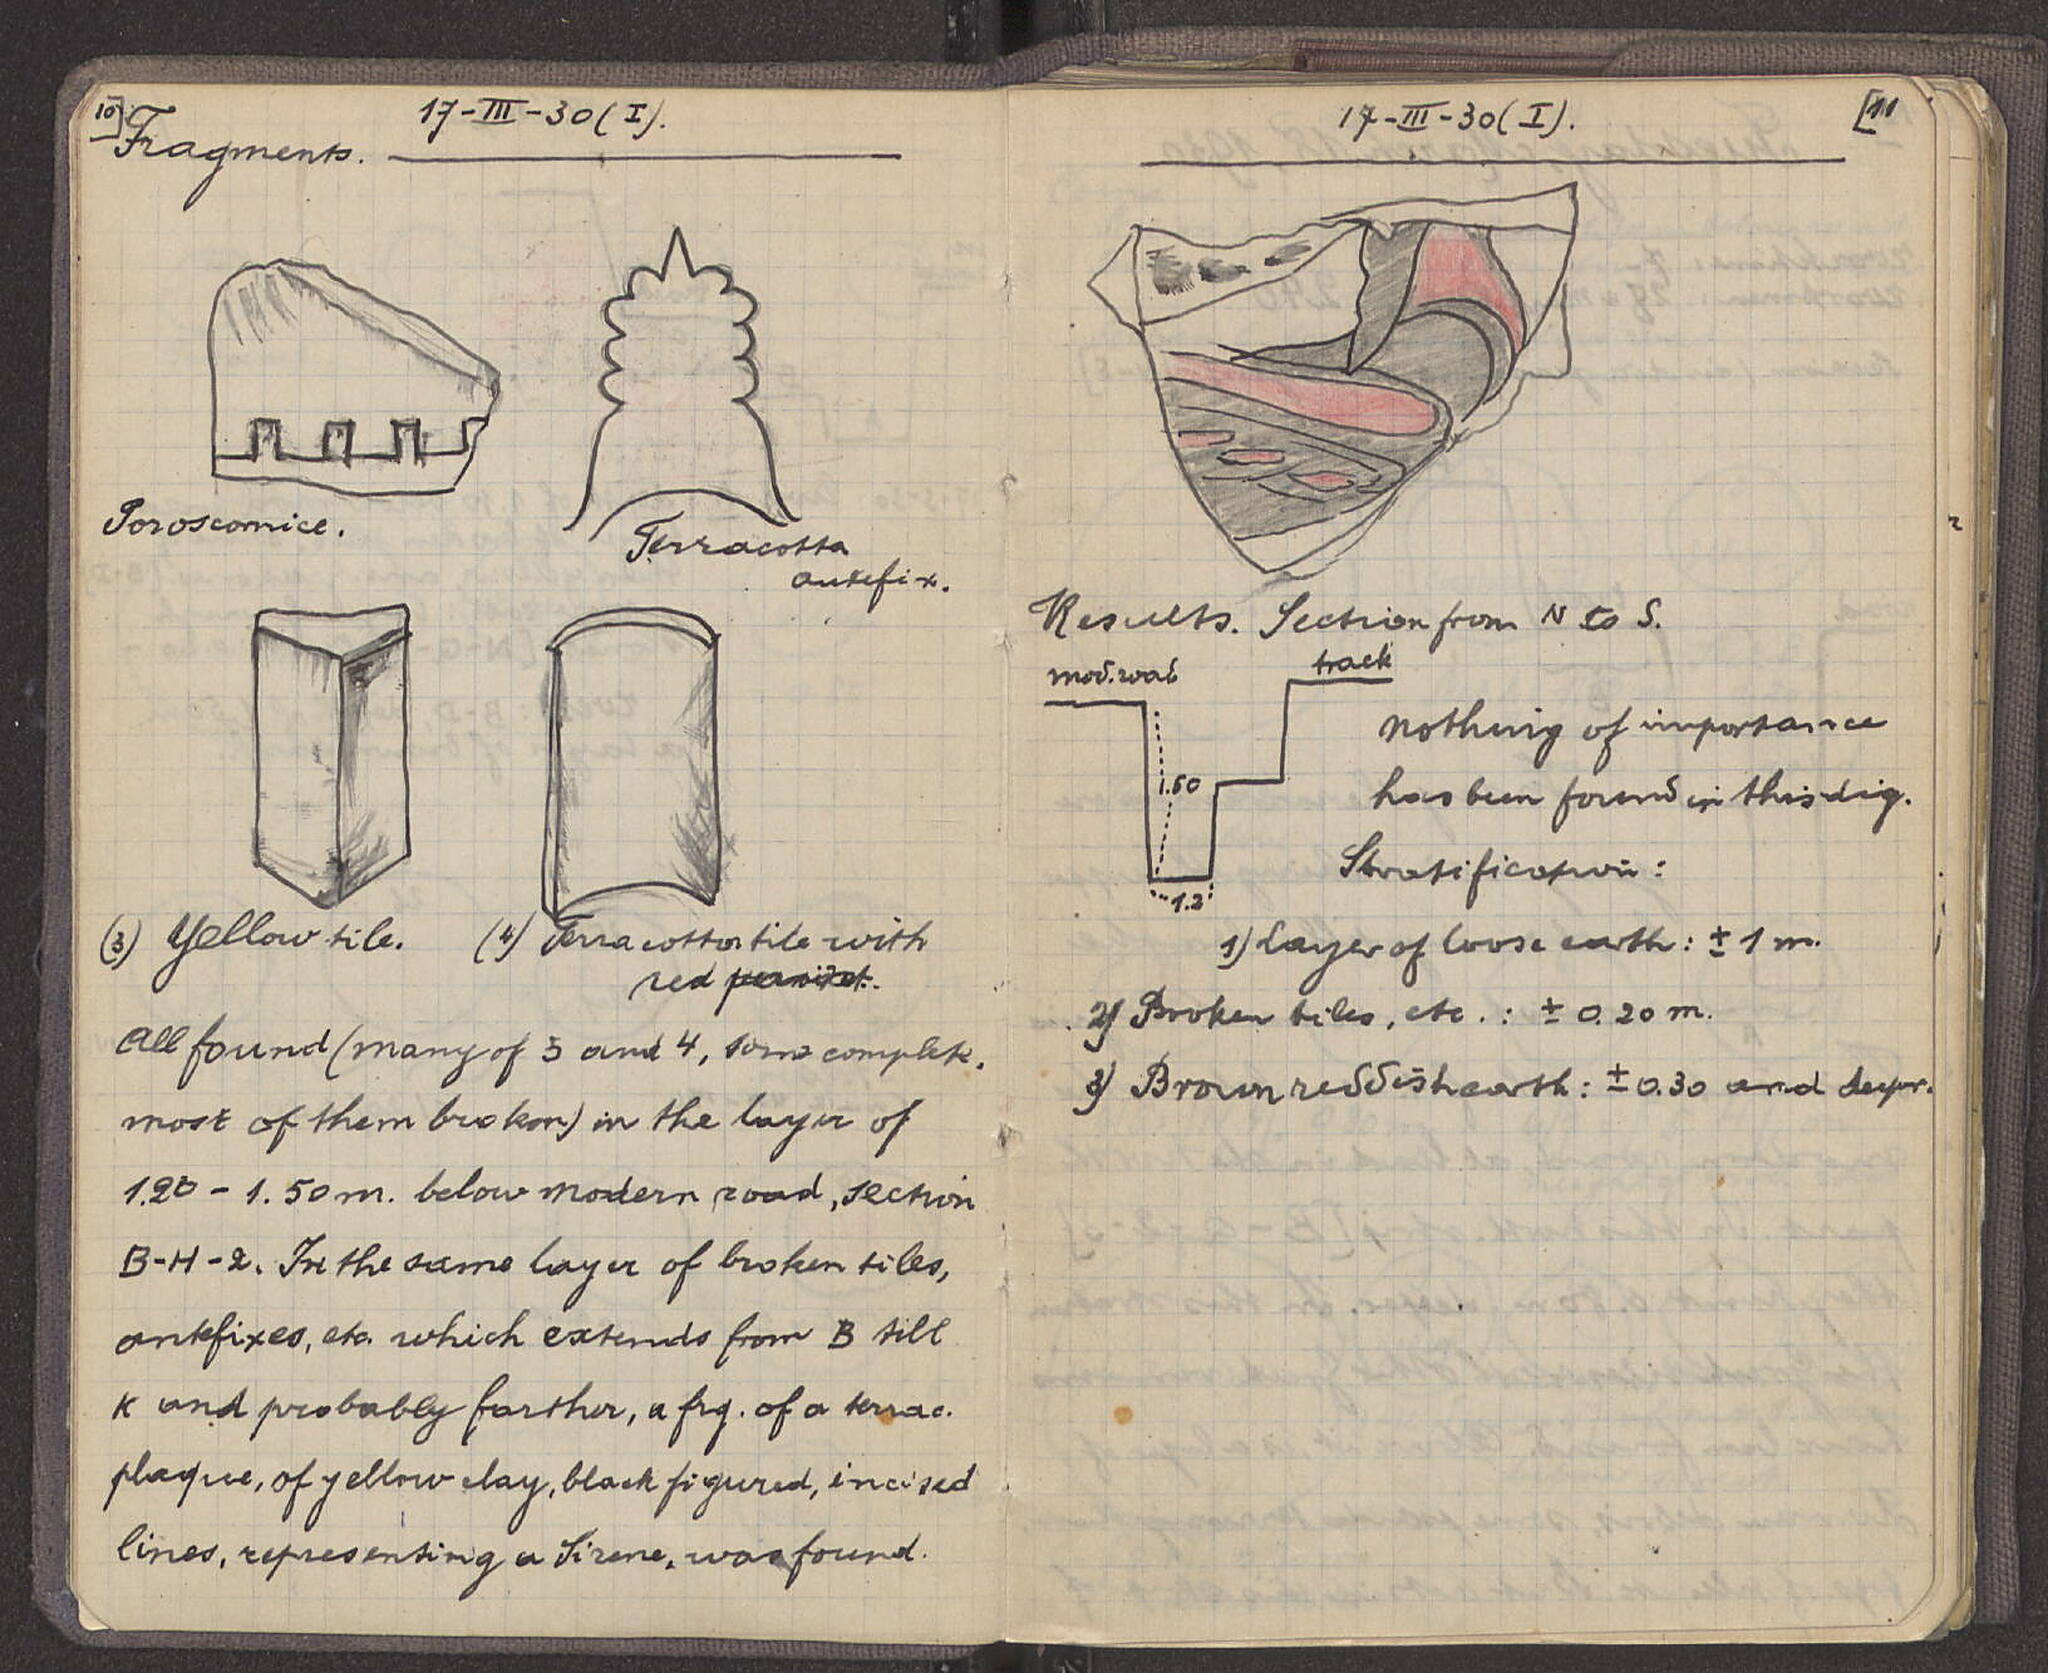 10]
17-III-30 (I).
Fragments.
Poroscornice.
Terracotta
antefix.
(3) Yellow tile.
(4) Terracotta tile with
red
All found (many of 3 and 4, some complete,
most of them broken) in the layer of
1.20 - 1.50 m. below modern road, section
B-H-2. In the same layer of broken tiles,
antefixes, etc. which extends from B till
K and probably farther, a frg. of a terrac.
plaque, of yellow clay, black figured, incised
lines, representing a Sirene, was found.
17-III-30 (I).
[11
Results. Section from N to S.
mod. road
track
1.50
1.2
nothing of importance
has been found in this dig.
Stratification:
1) Layer of loose earth: ± 1 m.
2) Broken tiles, etc.: ± 0.20 m.
3) Brown reddish earth: ± 0.30 and deeper.